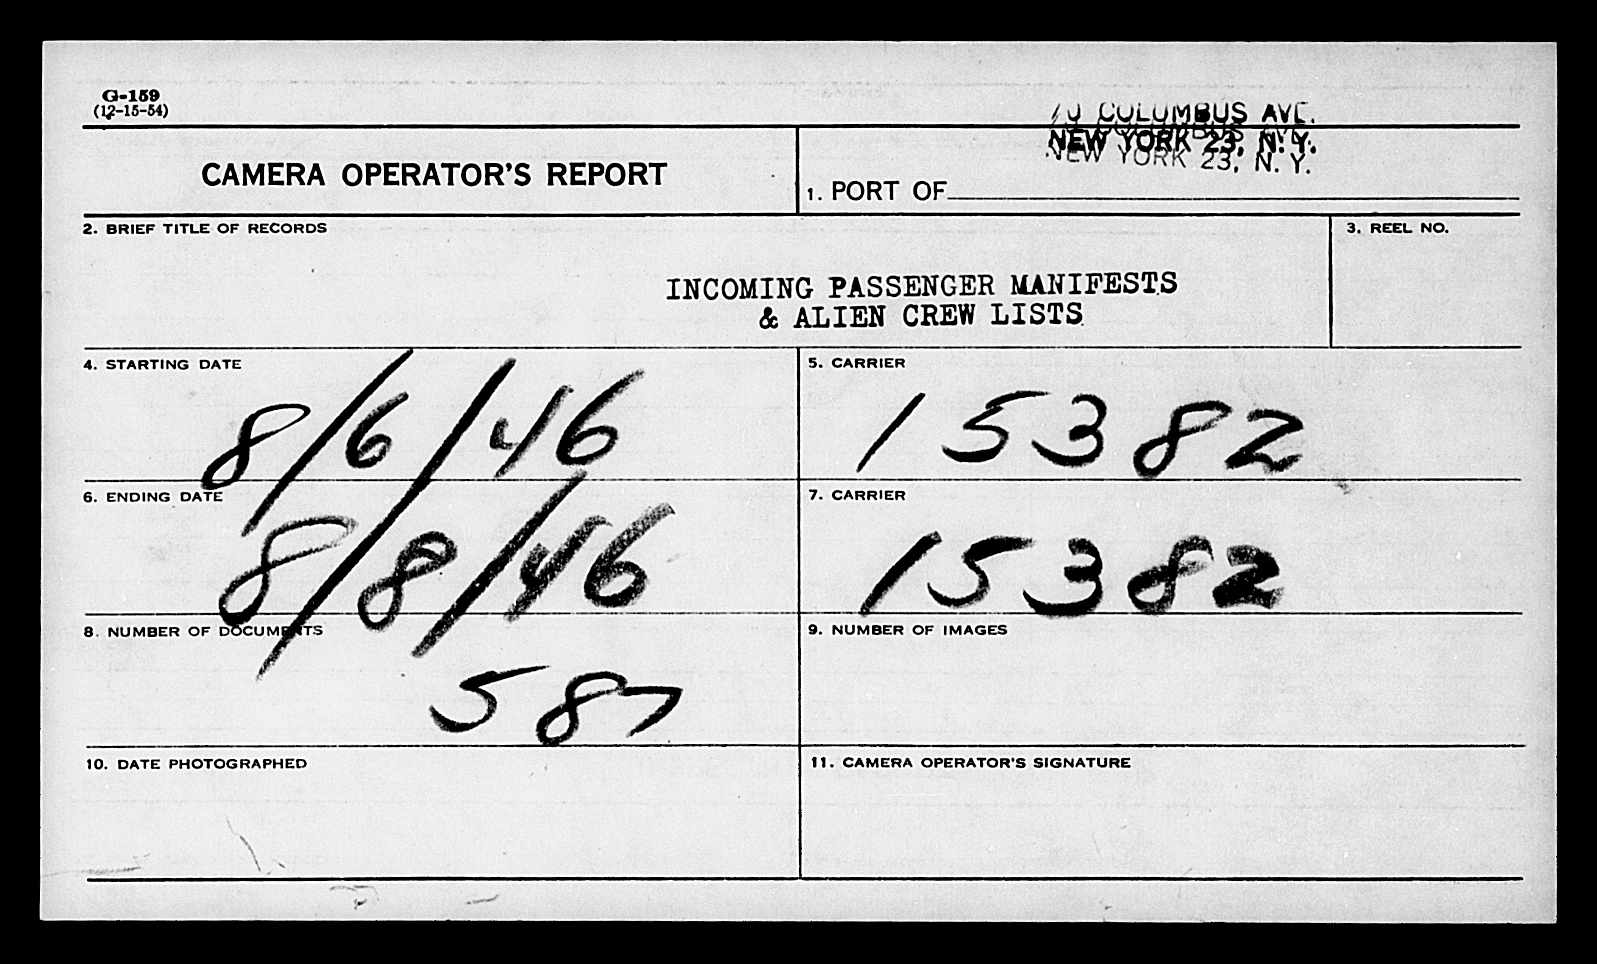 G-159
(12-15-54)
70 COLUMBUS AVE.
NEW YORK 23, N.Y.
NEW YORK 23, N. Y.
CAMERA OPERATOR'S REPORT
1. PORT OF
2. BRIEF TITLE OF RECORDS
3. REEL NO.
INCOMING PASSENGER MANIFESTS
& ALIEN CREW LISTS
4. STARTING DATE
8/6/46
5. CARRIER
15382
6. ENDING DATE
8/8/46
7. CARRIER
15382
8. NUMBER OF DOCUMENTS
587
9. NUMBER OF IMAGES
10. DATE PHOTOGRAPHED
11. CAMERA OPERATOR'S SIGNATURE